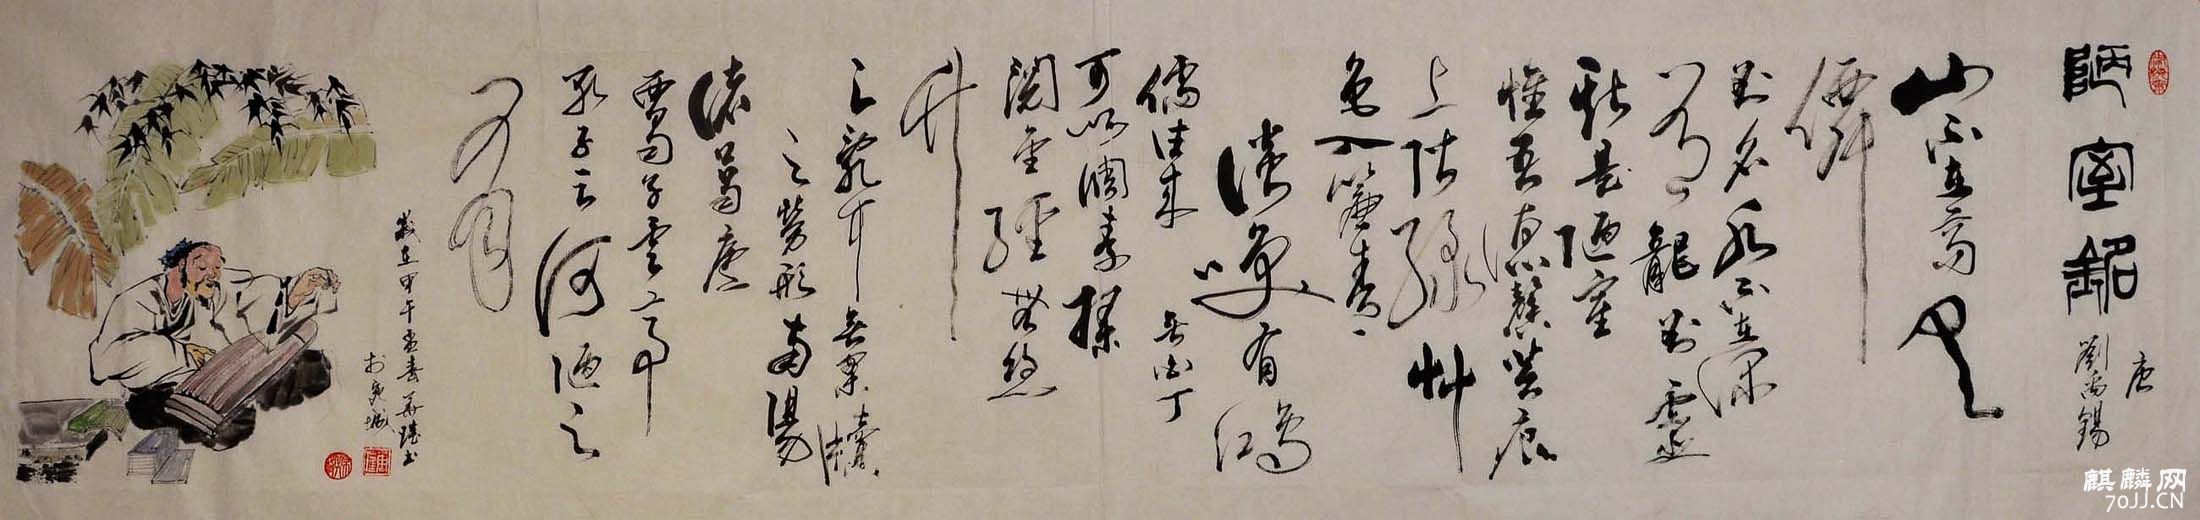 陋室銘
唐
劉禹錫
山不在高有
僊
則名水不在深
有龍則靈
斯是陋室
惟吾德馨苔痕
上階綠艸
色入簾青
談笑有鴻
儒往来無白丁
可以調素琴
閱金經無絲
竹
之亂耳無案牘
之勞形南陽
諸葛廬
西蜀子雲亭
孔子云何陋之
有
歲在甲午孟春
於宛城
麒麟网
70JJ.CN